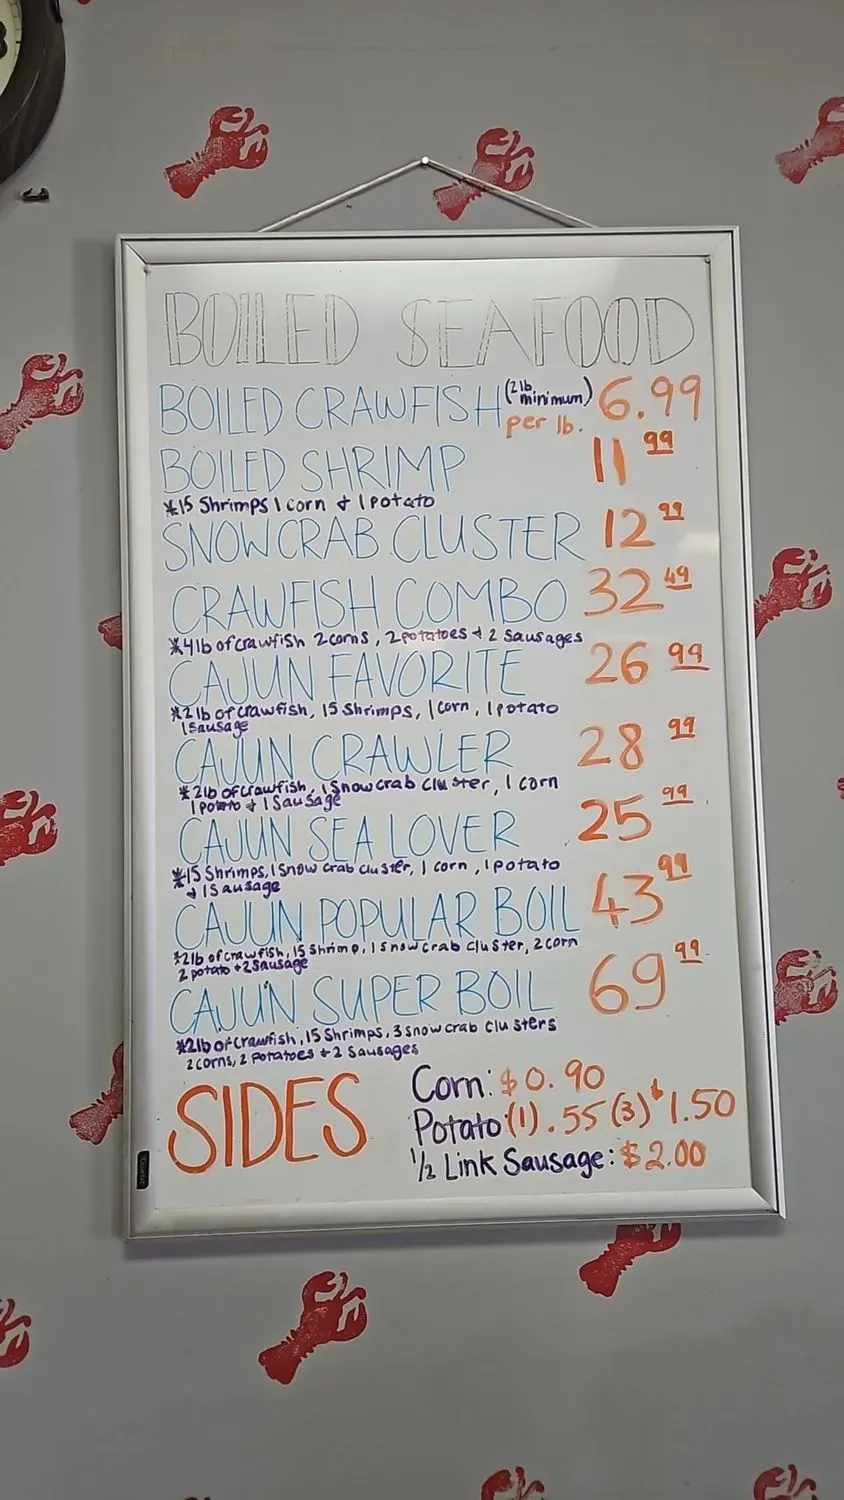 BOILED SEAFOOD
BOILED CRAWFISH (2 lb minimum) per lb. 6.99
BOILED SHRIMP 11 99
*15 Shrimps 1 corn + 1 potato
SNOWCRAB CLUSTER 12 99
CRAWFISH COMBO 32 49
*4lb of crawfish 2 corns, 2 potatoes + 2 sausages
CAJUN FAVORITE 26 99
*2lb of crawfish, 15 Shrimps, 1 corn, 1 potato
1 sausage
CAJUN CRAWLER 28 99
*2lb of crawfish, 1 Snow crab cluster, 1 corn
1 potato + 1 Sausage
CAJUN SEA LOVER 25 99
*15 Shrimps, 1 Snow crab cluster, 1 corn, 1 potato
+ 1 Sausage
CAJUN POPULAR BOIL 43 99
*2lb of crawfish, 15 Shrimp, 1 snow crab cluster, 2 corn
2 potato + 2 Sausage
CAJUN SUPER BOIL 69 99
*2lb of crawfish, 15 Shrimps, 3 snow crab clusters
2 corns, 2 potatoes + 2 Sausages
SIDES
Corn: $0.90
Potato: (1) .55 (3) $1.50
1/2 Link Sausage: $2.00